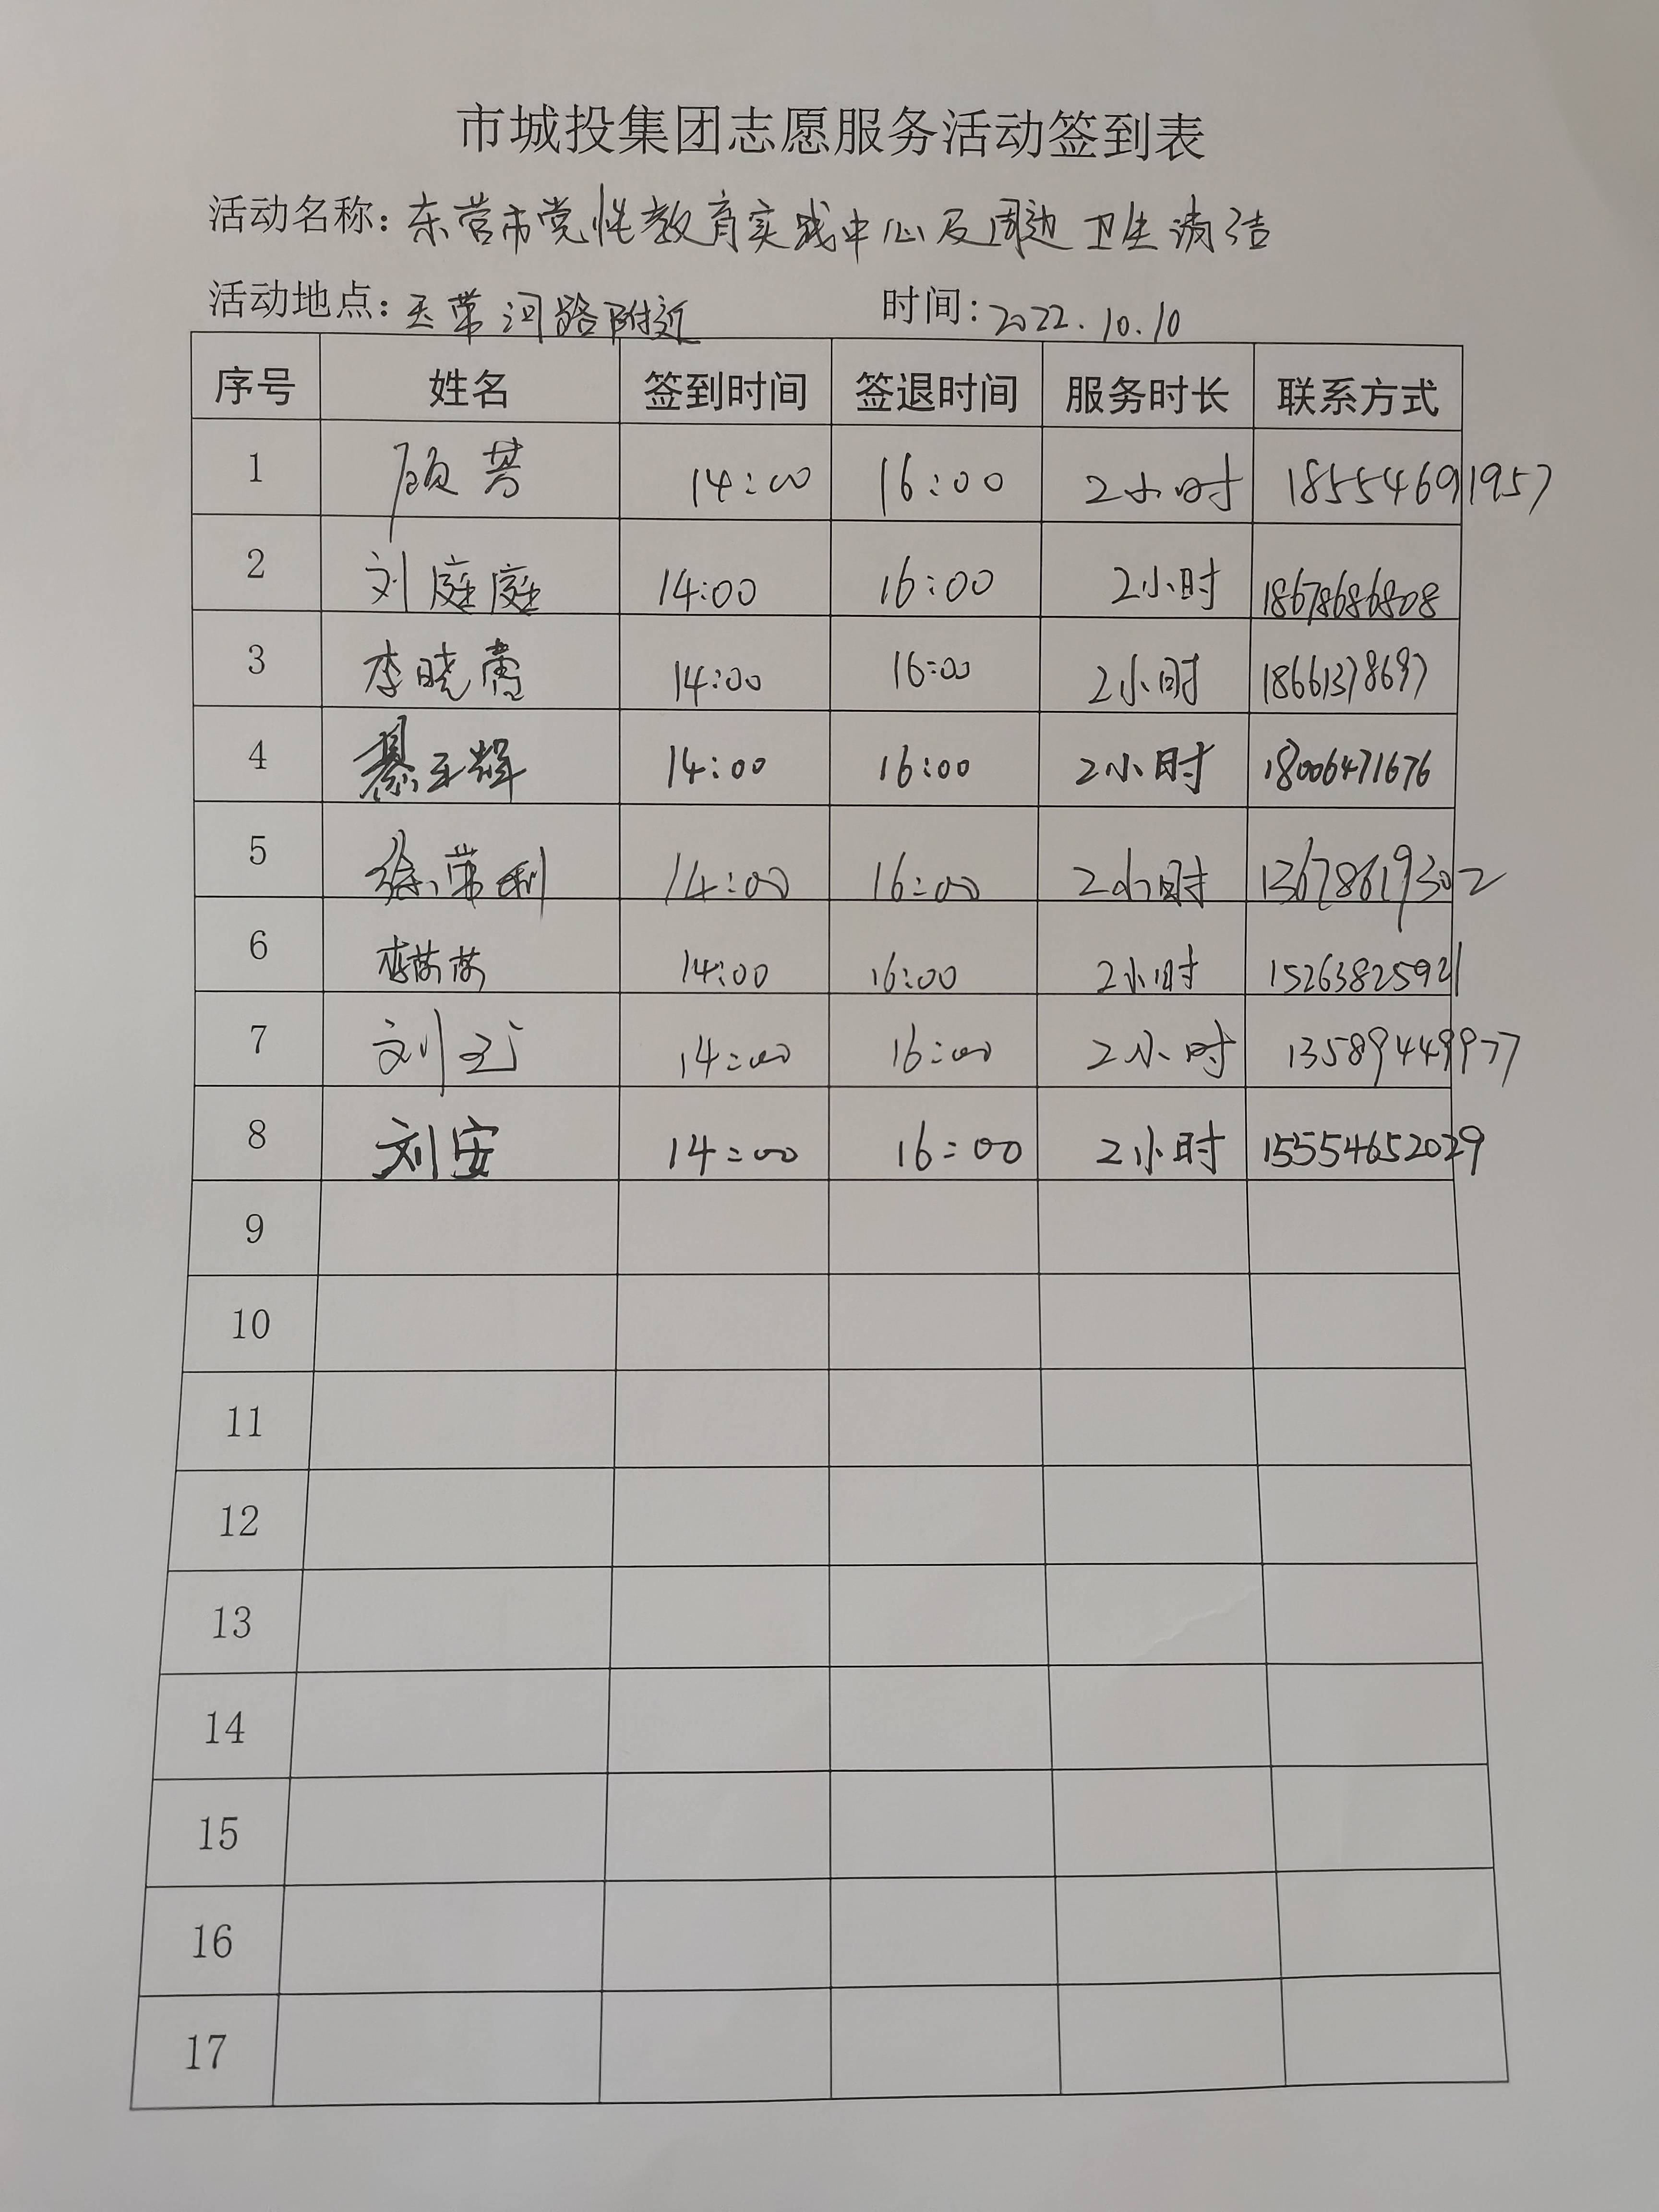 市城投集团志愿服务活动签到表
活动名称：东营市党性教育实践中心及周边卫生清洁
活动地点：玉带河路附近 时间：2022.10.10
序号 姓名 签到时间 签退时间 服务时长 联系方式
1 顾芳 14:00 16:00 2小时 18554691957
2 刘庭庭 14:00 16:00 2小时 18678686808
3 李晓霞 14:00 16:00 2小时 18661378697
4 綦玉辉 14:00 16:00 2小时 18006471676
5 徐常利 14:00 16:00 2小时 13678619302
6 李茜茜 14:00 16:00 2小时 15263825921
7 刘 14:00 16:00 2小时 13589449977
8 刘安 14:00 16:00 2小时 15554652029
9
10
11
12
13
14
15
16
17